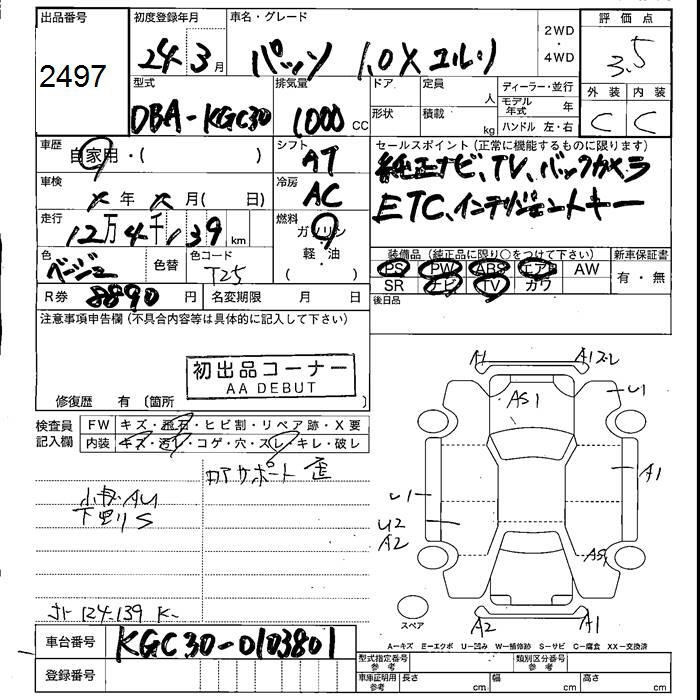 出品番号
2497
初度登録年月
24年3月
車名・グレード
パッソ 1.0X ユルリ
2WD
・
4WD
評価点
3.5
外装 内装
C C
型式
DBA-KGC30
排気量
1000 CC
ドア 定員
人
形状 積載
kg
ディーラー・並行
モデル年式 年
ハンドル 左・右
車歴
自家用・( )
シフト
AT
セールスポイント (正常に機能するものに限ります)
純正ナビ、TV、バックカメラ
ETC、インテリジェントキー
車検
年 月( 日)
冷房
AC
走行
12万4千139 km
燃料
ガソリン
軽・油
( )
色
ベージュ
色替
色コード
T25
装備品 (純正品に限り○をつけて下さい)
PS PW ABS エアB AW
SR ナビ TV カワ
新車保証書
有・無
R券 8890 円
名変期限 月 日
後日品
注意事項申告欄 (不具合内容等は具体的に記入して下さい)
初出品コーナー
AA DEBUT
修復歴 有 〔箇所 〕
検査員記入欄
FW キズ・飛石・ヒビ割・リペア跡・X要
内装 キズ・汚レ・コゲ・穴・スレ・キレ・破レ
コアサポート 歪
小キズAU
下廻りS
メーター 124.139 K
車台番号 KGC30-0103801
登録番号
A1 A1 U1
AS1
A1
U1
U2
A2
A2 A1
スペア
A-キズ E-エクボ U-凹み W-補修跡 S-サビ C-腐食 XX-交換済
型式指定番号 参考
類別区分番号 参考
車庫証明用 参考
長さ cm
幅 cm
高さ cm